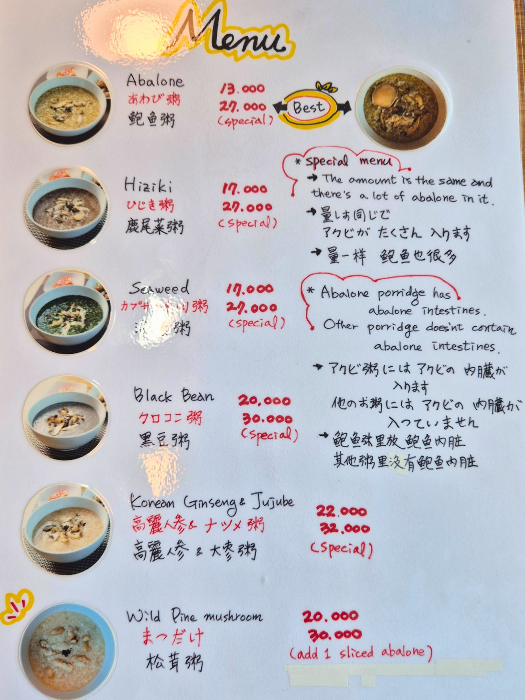 Menu
Abalone 13.000
あわび粥 27.000
鮑魚粥 (special)
Best
* special menu
→ The amount is the same and
there's a lot of abalone in it.
→ 量は同じで
アクビが たくさん 入ります
→ 量一样 鲍鱼也很多
Hiziki 17.000
ひじき粥 27.000
鹿尾菜粥 (special)
Seaweed 17.000
粥 27.000
粥 (special)
* Abalone porridge has
abalone intestines.
Other porridge doesn't contain
abalone intestines.
→ アクビ粥には アクビの 内臓が
入ります
他のお粥には アクビの 内臓が
入っていません
→ 鲍鱼粥里放 鲍鱼内脏
其他粥里没有鲍鱼内脏
Black Bean 20.000
クロコン粥 30.000
黒豆粥 (special)
Korean Ginseng & Jujube 22.000
高麗人参 & ナツメ粥 32.000
高麗人参 & 大枣粥 (special)
Wild Pine mushroom 20.000
まつだけ 30.000
松茸粥 (add 1 sliced abalone)